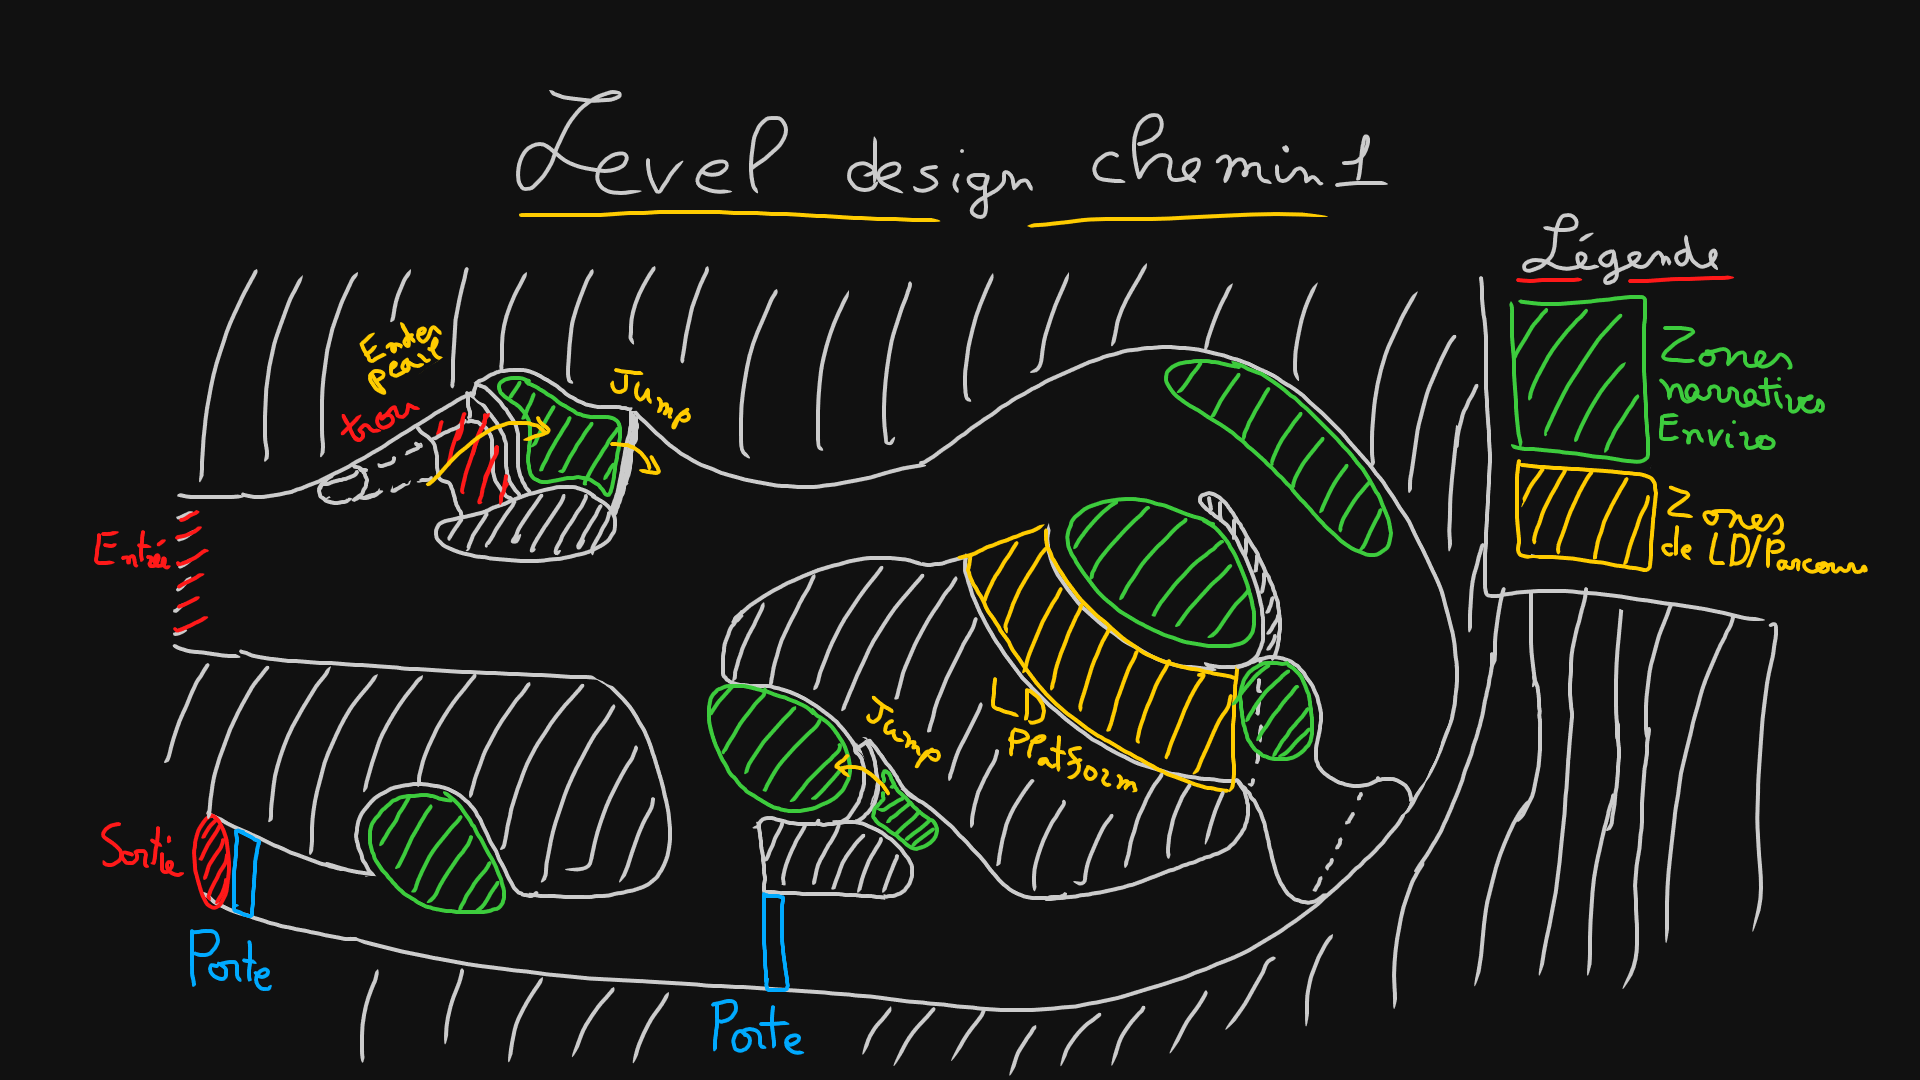 Level design chemin 1
Légende
Zones
narratives
Enviro
Zones
de LD/Parcours
trou
Jump
Entrée
LD
Platform
Jump
Sortie
Porte
Porte